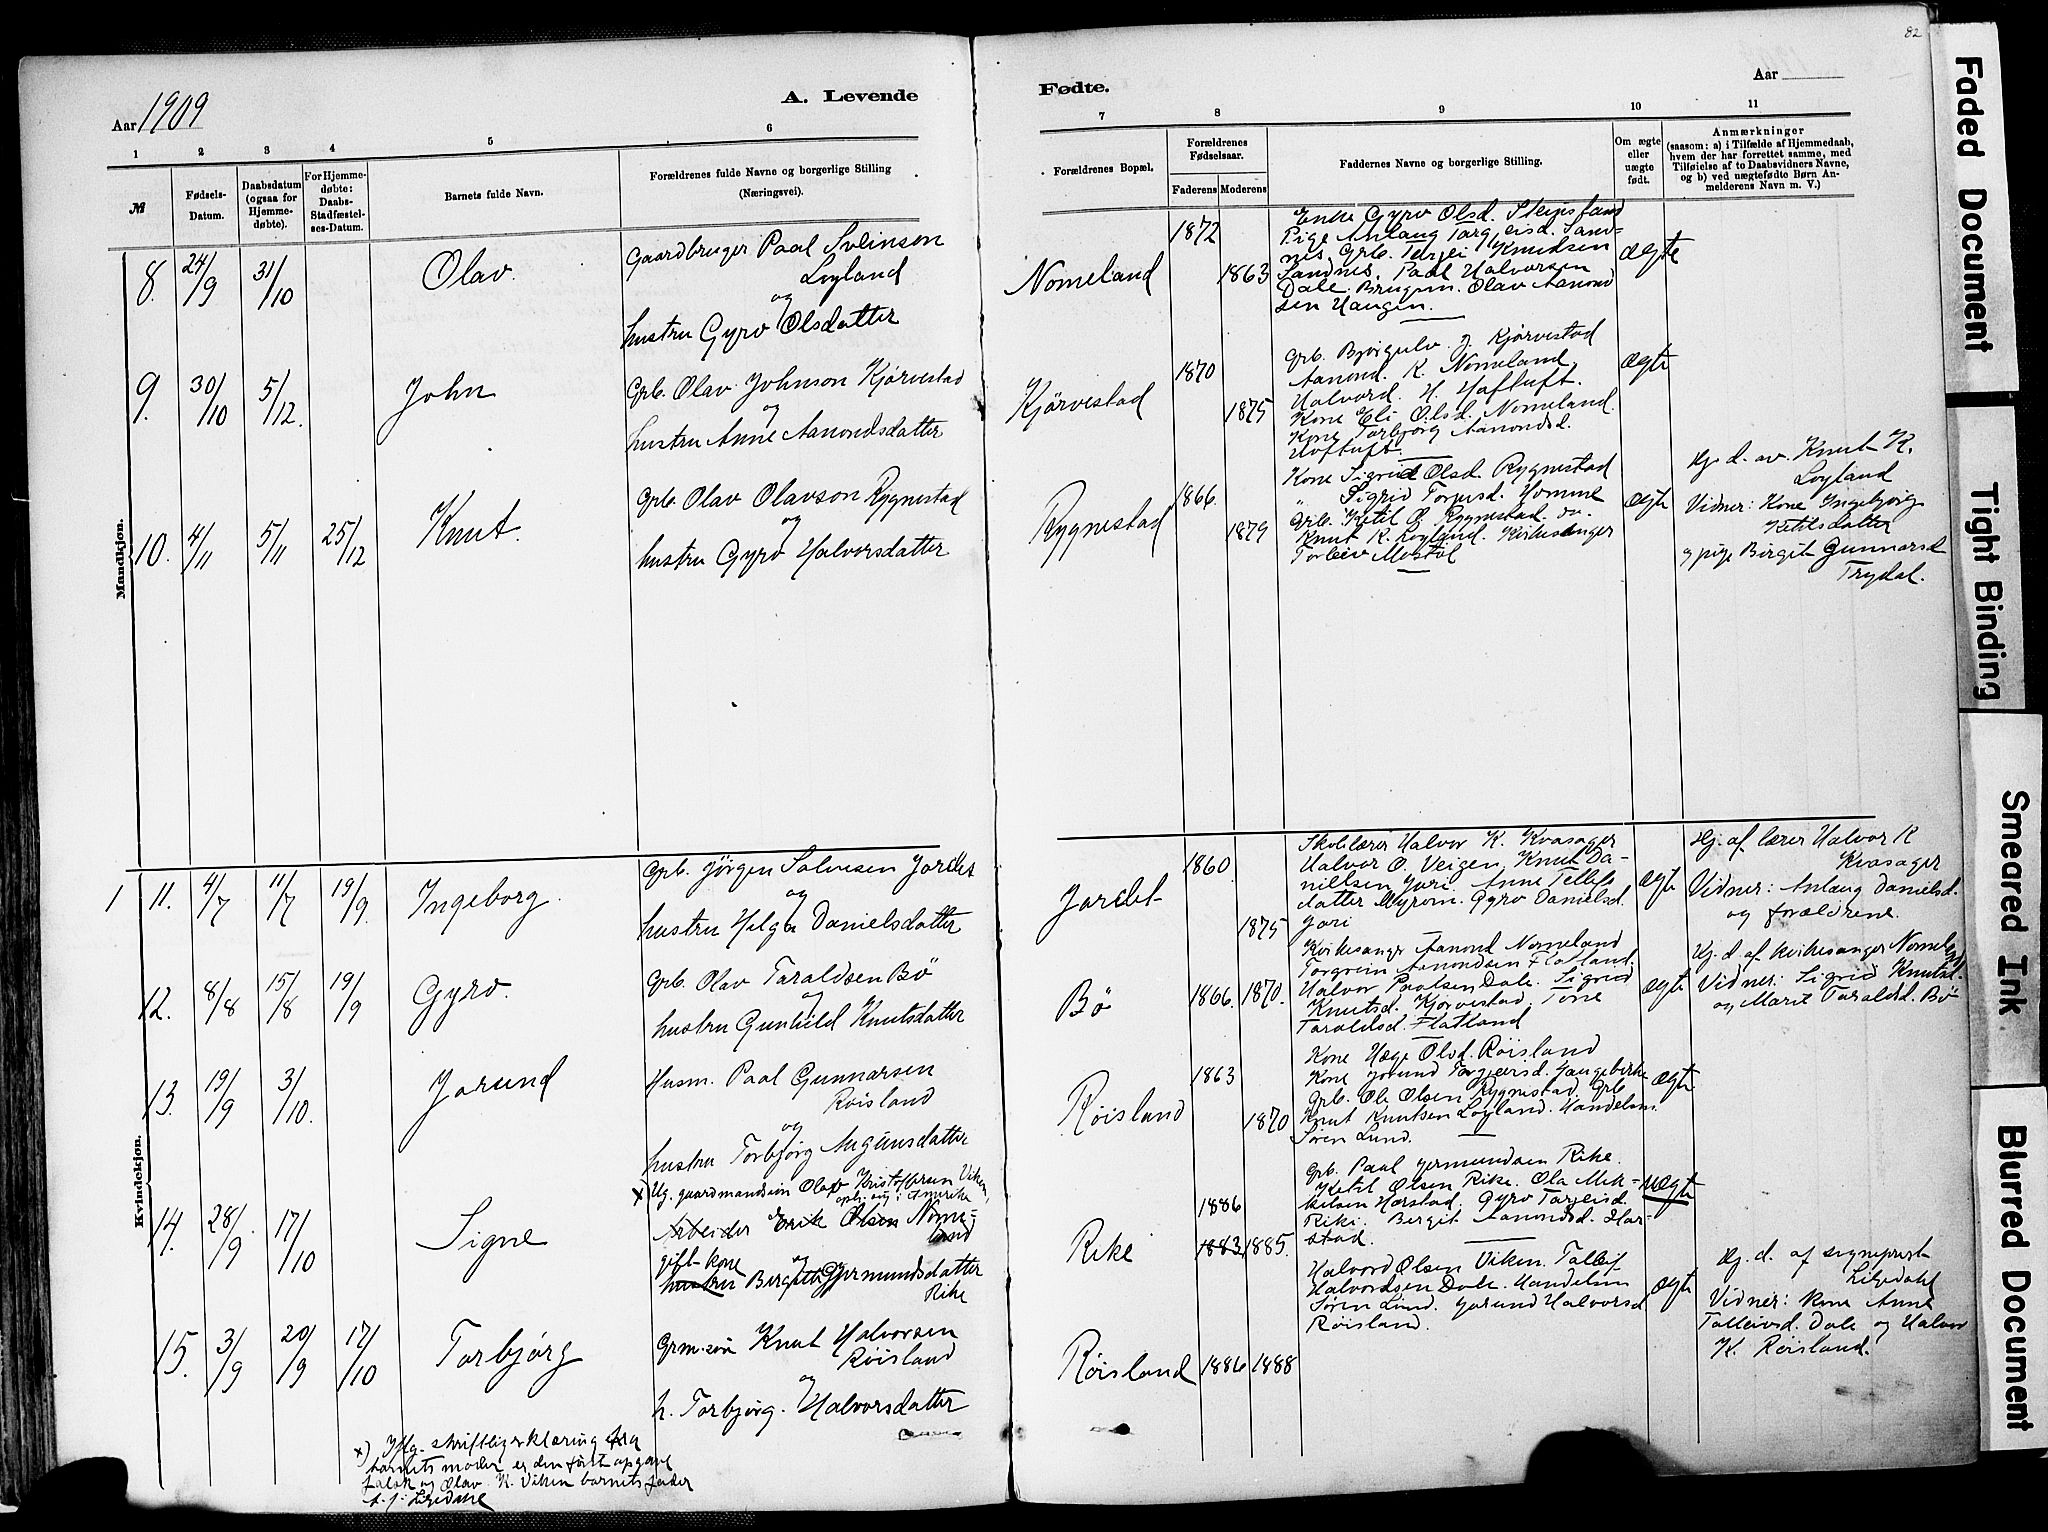 82
Aar 1909
A. Levende
Fødte.
Aar
1 2 3 4 5 6 7 8 9 10 11
№
Fødsels-
Datum.
Daabsdatum
(ogsaa for
Hjemme-
døbte).
For Hjemme-
døbte:
Daabs-
Stadfæstel-
ses-Datum.
Barnets fulde Navn.
Forældrenes fulde Navne og borgerlige Stilling
(Næringsvei).
Forældrenes Bopæl.
Forældrenes
Fødselsaar.
Faderens Moderens
Faddernes Navne og borgerlige Stilling.
Om ægte
eller
uægte
født.
Anmærkninger
(saasom: a) i Tilfælde af Hjemmedaab,
hvem der har forrettet samme, med
Tilføielse af to Daabsvidners Navne,
og b) ved uægtefødte Børn An-
melderens Navn m. V.)
Mandkjøn.
8. 24/9 31/10 Olav.
Gaardbruger Paal Sveinson
Løyland
og
hustru Gyro Olsdatter
Nomeland 1872 1863
Enke Gyro Olsd.
Pige Anlaug Targjeisd. Sand-
nes. Grb. Terjei Knudsen
Sandnes. Paal Halvorsen
Dale. Brugsm. Olav Aanond
sen Haugen.
ægte
9. 30/10 5/12. John
Grb. Olav Johnson Kjörvestad
og
hustru Anne Aanondsdatter
Kjörvestad 1870 1875
Grb. Bjørgulv J. Kjørvestad
Aanond. K. Nomeland
Halvord. H. Hoftuft.
Kone Eli Olsd. Nomeland.
Kone Torbjörg Aanondsd.
Hoftuft.
ægte
10. 4/11 5/11 25/12 Knut.
Grb. Olav Olavson Rygnestad
og
hustru Gyro Halvorsdatter
Rygnestad 1866. 1879
Kone Sigrid Olsd. Rygnestad
" Sigrid Torjusd. Homme
Grb. Ketil O. Rygnestad. do.
Knut K. Løyland. Kirkesanger
Torleiv Mostöl
ægte
Hj. d. av Knut K.
Løyland
Vidner: Kone Ingebjørg
Ketilsdatter
og pige Birgit Gunnarsd
Trydal.
Kvindekjøn.
1 11. 4/7 11/7 19/9. Ingeborg.
Grb. Jörgen Salvesen Jordet
og
hustru Helga Danielsdatter
Jordet 1860. 1875
Skolelærer Halvor K. Kvasager
Halvor O. Veigen, Knut Da-
nielsen Jori. Anne Tellefs
datter Myrom. Gyro Danielsd.
Jori
ægte
Hj. af lærer Halvor K
Kvasager
Vidner: Anlaug Danielsd.
og forældrene.
12. 8/8 15/8 19/9 Gyro.
Grb. Olav Taraldsen Bö
og
hustru Gunhild Knutsdatter
Bö 1866. 1870.
Kirkesanger Aanond Nomeland
Torgrim Aanondsen Flatland.
Halvor Paalsen Dale. Sigrid
Knutsd. Kjörvestad. Tone
Taraldsd. Flatland
ægte
Hj. d. af kirkesanger Nomeland
Vidner: Sigrid Knutsd.
og Marit Taraldsd. Bö
13. 19/9 3/10. Jorund
Husm. Paal Gunnarsen
Röisland
og
hustru Torbjörg Augunsdatter
Röisland 1863 1870
Kone Hæge Olsd. Röisland
Kone Jorund Torgjeirsd. Haugebirke
Grb. Ole Olsen Rygnestad. Grb.
Knut Knutsen Løyland. Handelsm.
Sören Lund.
ægte
14. 28/9 17/10 Signe
x Ug. gaardmandssön Olav Kristoffersen Viken,
oph. sig i Amerika
Arbeider Erik Olsen Nome-
land
gift kone og
hustru Bergitte Gjermundsdatter
Rike
Rike 1886 1883. 1885.
Grb. Paal Gjermundsen Rike.
Ketil Olsen Rike. Ola Mik-
kelsen Harstad. Gyro Targeisd.
Rike. Bergit Aanondsd. Har-
stad.
uægte
15. 3/9 20/9 17/10 Torbjörg
Grm.sön Knut Halvorsen
Röisland
og
h. Torbjörg. Halvorsdatter
Röisland 1886 1888
Halvord Olsen Viken. Tallef
Halvordsen Dale. Handelsm
Sören Lund. Jorund Halvorsd
Röisland.
ægte
Hj. d. af sogneprest
Liljedahl
Vidner: Kone Anne
Talleivsd. Dale og Halvor
K. Röisland.
x) Iflg. skriftlig erklæring fra
barnets moder er den först opgavne
falsk og Olav K. Viken barnets fader
Liljedahl
Faded Document
Tight Binding
Smeared Ink
Blurred Document